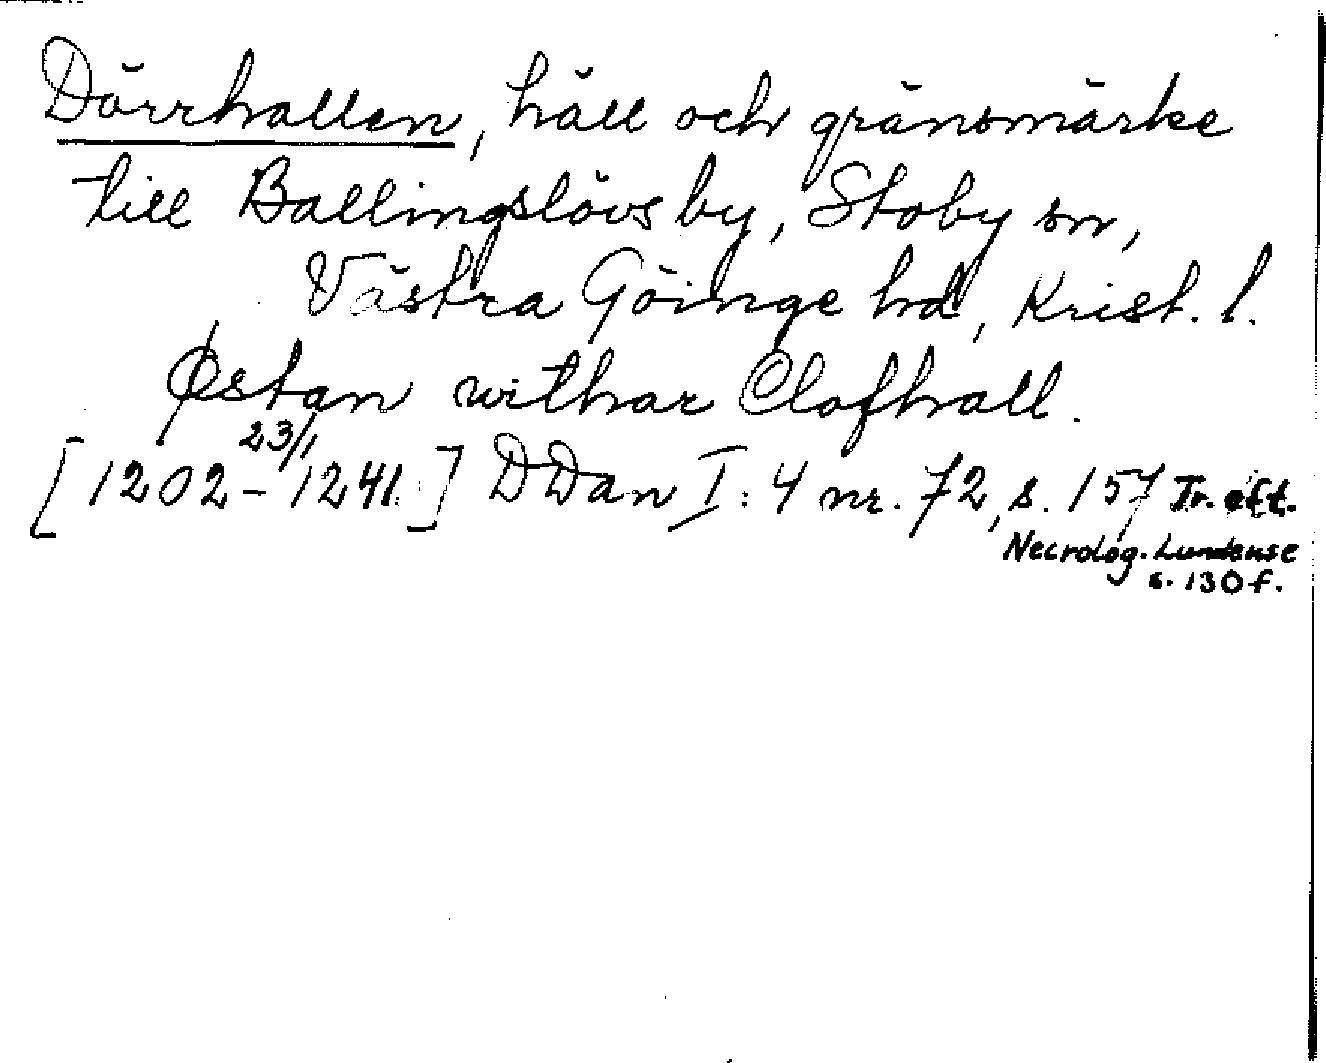 Dörrhallen, häll och gränsmärke
till Ballingslövs by, Stoby sn,
Västra Göinge hd, Krist. l.
Østan withar Clofhall.
23/1
[1202-1241] DDan I:4 nr. 72, s. 157 Tr. eft.
Necrolog. Lundense
s. 130 f.